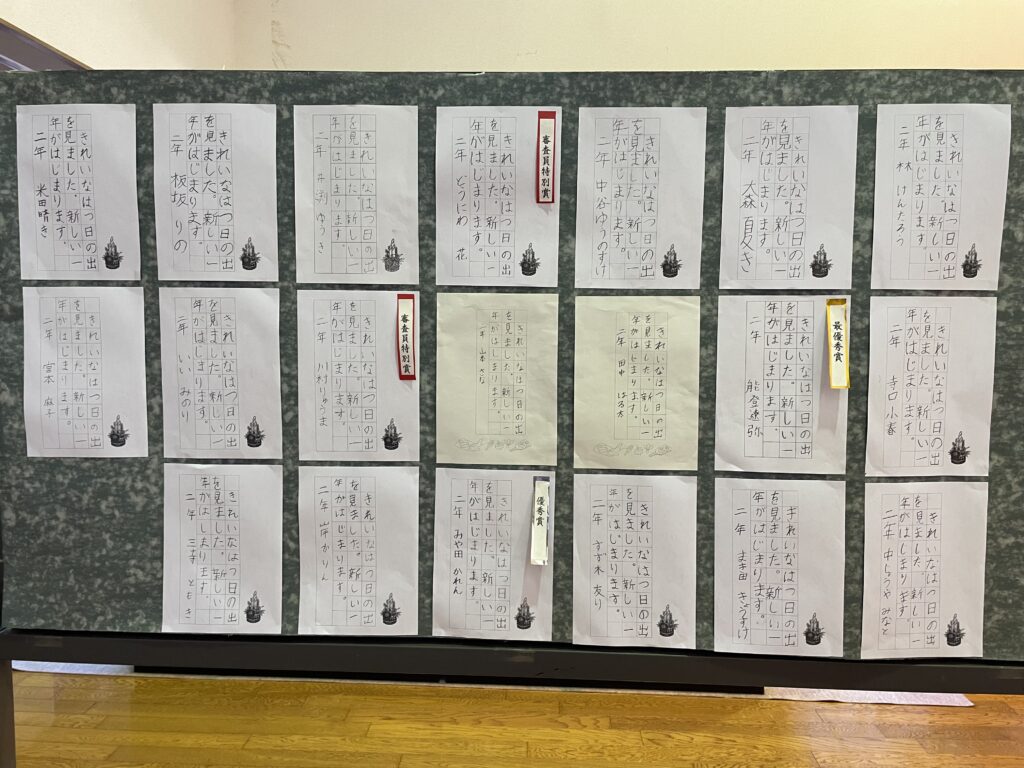 きれいなはつ日の出
を見ました。新しい一
年がはじまります。
二年 米田晴き
きれいなはつ日の出
を見ました。新しい一
年がはじまります。
二年 板坂 りの
きれいなはつ日の出
を見ました。新しい一
年がはじまります。
二年 ゆうき
審査員特別賞
きれいなはつ日の出
を見ました。新しい一
年がはじまります。
二年 どうにわ 花
きれいなはつ日の出
を見ました。新しい一
年がはじまります。
二年 中谷ゆうのすけ
きれいなはつ日の出
を見ました。新しい一
年がはじまります。
二年 大森
きれいなはつ日の出
を見ました。新しい一
年がはじまります。
二年 林 けんたろう
きれいなはつ日の出
を見ました。新しい一
年がはじまります。
二年 宮本 麻子
きれいなはつ日の出
を見ました。新しい一
年がはじまります。
二年 いい みのり
審査員特別賞
きれいなはつ日の出
を見ました。新しい一
年がはじまります。
二年 川村りゅうま
きれいなはつ日の出
を見ました。新しい一
年がはじまります。
二年 山本 さな
きれいなはつ日の出
を見ました。新しい一
年がはじまります。
二年 田中 はる太
最優秀賞
きれいなはつ日の出
を見ました。新しい一
年がはじまります。
二年 能登遼弥
きれいなはつ日の出
を見ました。新しい一
年がはじまります。
二年 寺口 小春
きれいなはつ日の出
を見ました。新しい一
年がはじまります。
二年 ともき
きれいなはつ日の出
を見ました。新しい一
年がはじまります。
二年 岸 かりん
優秀賞
きれいなはつ日の出
を見ました。新しい一
年がはじまります。
二年 みや田 かれん
きれいなはつ日の出
を見ました。新しい一
年がはじまります。
二年 すず木 友り
きれいなはつ日の出
を見ました。新しい一
年がはじまります。
二年 まき田 きょうすけ
きれいなはつ日の出
を見ました。新しい一
年がはじまります。
二年 みなと